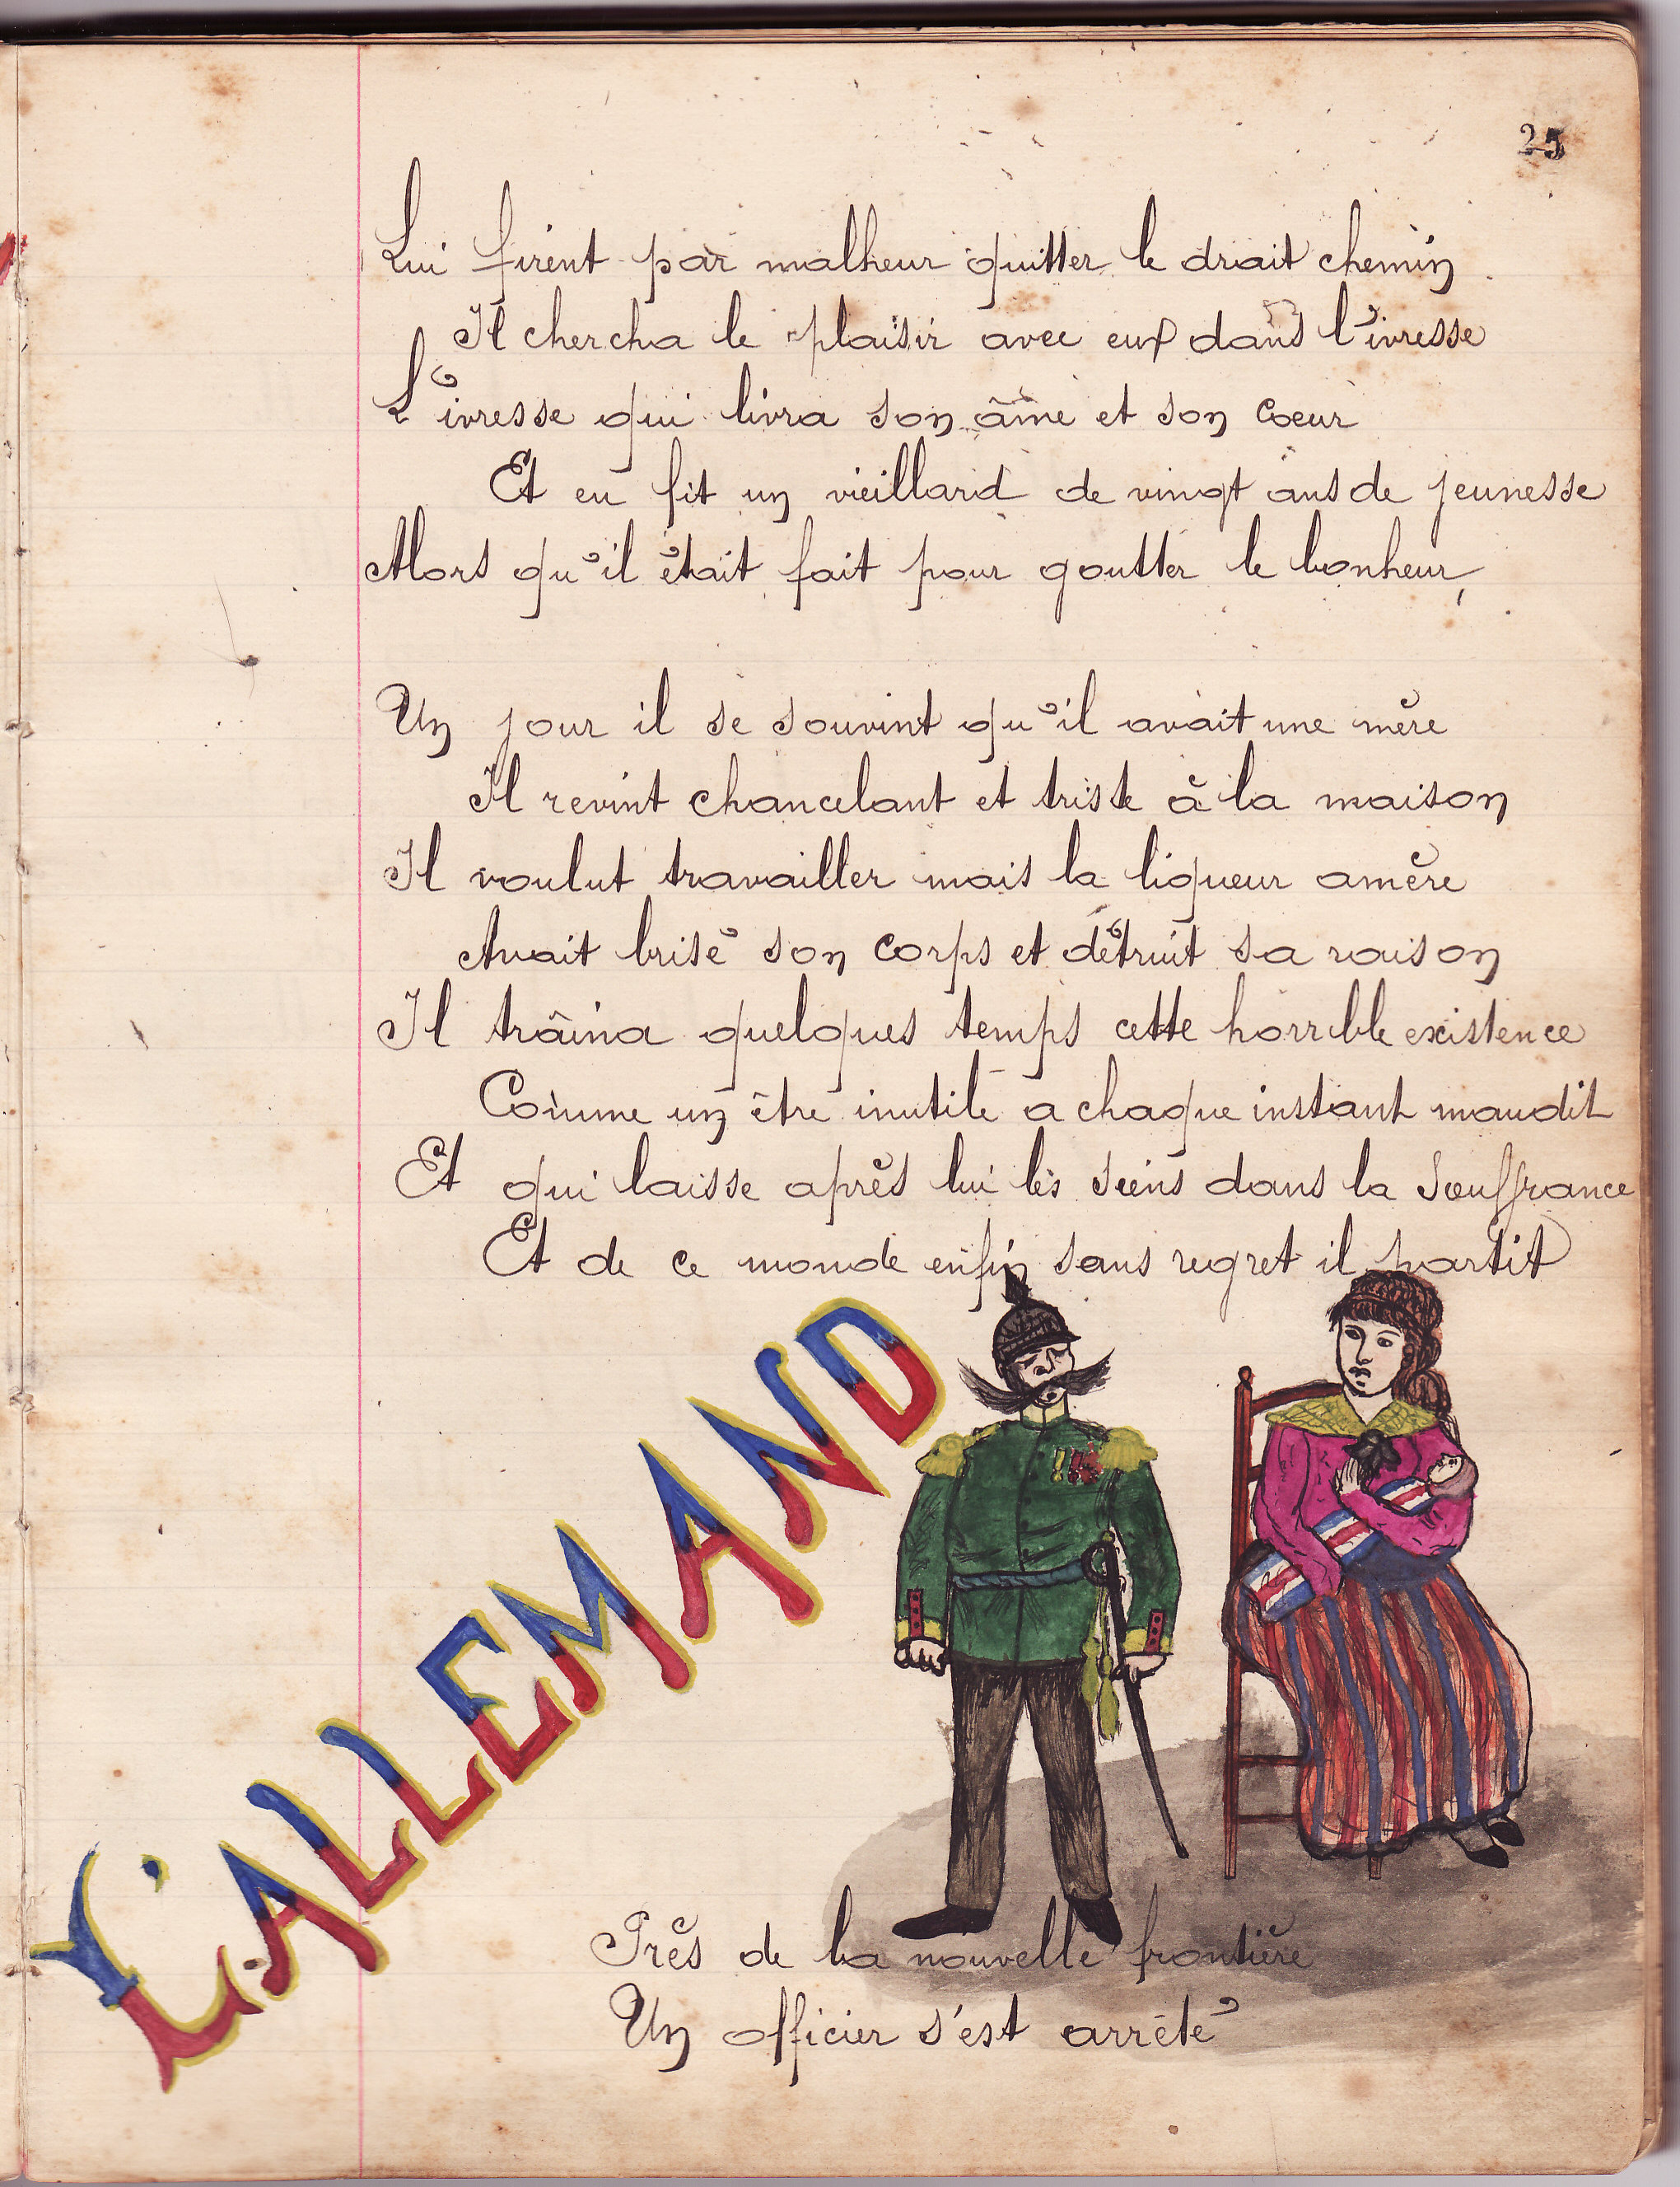 25
Lui firent par malheur quitter le droit chemin
Il chercha le plaisir avec eux dans l'ivresse
L'ivresse qui livra son âme et son cœur
Et en fit un vieillard de vingt ans de jeunesse
Alors qu'il était fait pour goutter le bonheur,
Un jour il se souvint qu'il avait une mère
Il revint chancelant et triste à la maison
Il voulut travailler mais la liqueur amère
Avait brisé son corps et détruit sa raison
Il traîna quelques temps cette horrible existence
Comme un être inutile a chaque instant maudit
Et qui laisse après lui les siens dans la souffrance
Et de ce monde enfin sans regret il partit
L'ALLEMAND
Près de la nouvelle frontière
Un officier s'est arrêté